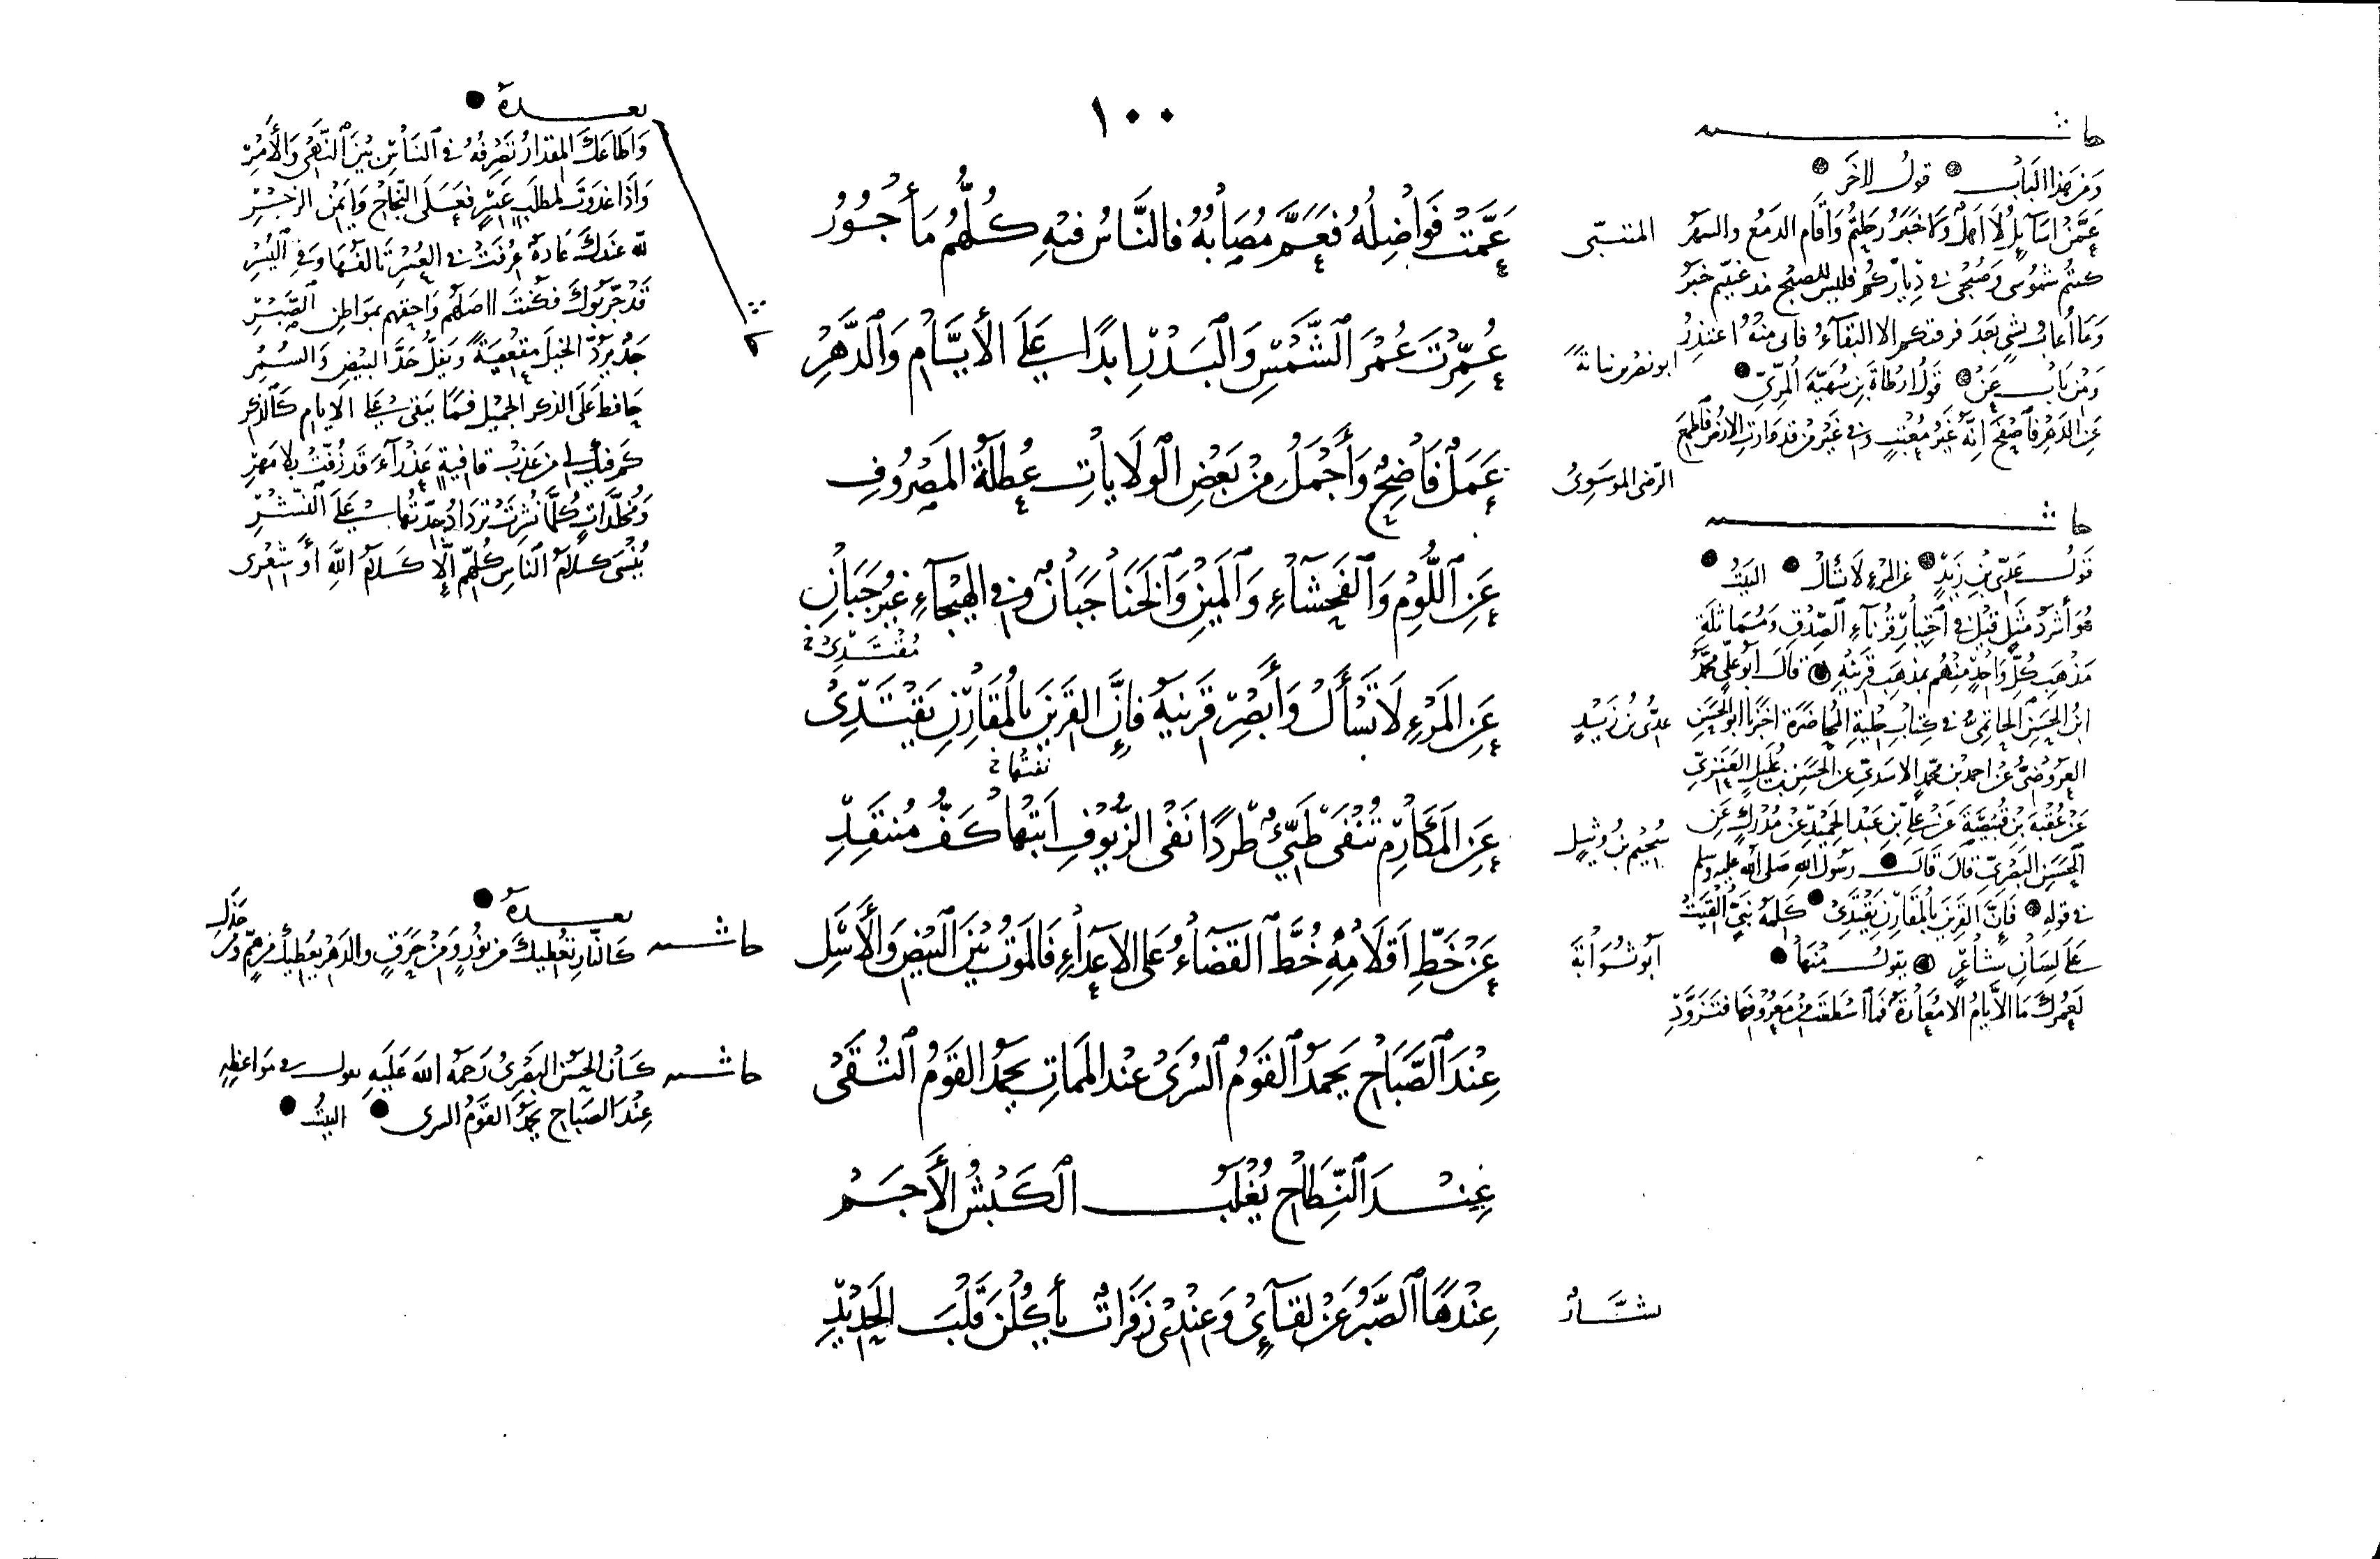 ١٠٠
عَمَّتْ فَوَاضِلُهُ فَعَمَّ مُصَابُهُ فَالنَّاسُ فِيهِ كُلُّهُمُ مَأْجُوْرُ
المتنبّي
عُمِّرْتَ عُمْرَ الشَّمْسِ وَالبَدْرِ ابدًا على الأَيَّامِ وَالدَّهْرِ
ابو نصر بن نباتة
عَمَلٌ فَاضِحٌ وَأَجْمَلُ مِنْ بَعْضِ الوِلَايَاتِ عُطْلَةُ المَصْرُوفِ
الرّضى الموسَوِىُّ
عَنِ اللُّوْمِ وَالفَحْشَاءِ وَالمَيْنِ وَالخَنَا جَبَانٌ وفي الهَيْجَاءِ غيرُ جَبَانِ
مُقْتَدِى
عَنِ المَرْءِ لَا تَسْأَلْ وَأَبْصِرْ قَرِيْنَهُ فَإِنَّ القَرِيْنَ بِالمُقَارِنِ يَقْتَدِيْ
عدىّ بن زيدٍ
نفتها
عَنِ المَكَارِمِ تُنْفَى طَيِّءٌ طَرْدًا نَفْىَ الزُّيُوْفِ ابَتْهَا كَفُّ مُنتَقِدِ
سُحَيْمُ بْنُ وَثِيلٍ
عَنْ خَطِّ اَقْلَامِهِ خُطَّ القَضَاءُ عَلى الاعدَاءِ فَالمَوْتُ بَيْنَ البِيْضِ وَالأَسَلِ
أبو شوابة
عِنْدَ الصَّبَاحِ يَحْمَدُ القَوْمُ السُرَى عِنْدَ المَمَاتِ يَحْمَدُ القَوْمُ التُقَى
عِنْدَ النِّطَاحِ يُغْلَبُ الكَبْشُ الأَجَمْ
عِنْدَهَا الصَّبْرُ عَنْ لِقَآئِى وَعِنْدِى زَفَرَاتٌ يَأْكُلْنَ قَلْبَ الحَدِيْدِ
بشَّارٌ
حاشــــية
وَمِنْ هَذَا البَابِ قولُ الاخَر
عَمَّنْ اُسَآيِلُ لَا اَهلٌ وَلا خَبَرُ رَحَلتُمُ وَاَقَام الدَمعُ والسهَرُ
كنتُم شُموُسى وَصُبْحِى في دِيَارِكُمُ فليس للصبْحِ مذ غِبتم خبَرُ
وَمَا أُعابُ بشىءٍ بَعْدَ فرقتكم الا البقَآءُ فانى منهُ اعتذِرُ
وَمِنْ بَابِ عَنْ قَوْلُ ارطَاةَ بنِ سُهَيَّةَ المُرّىِّ
عَنِ الدَهْرِ فَاصْفَحْ انَّهُ غَيْرُ مُعْتِبٍ وفي غَيْرِ من قد وارت الارضُ فَاطْمَعِ
حاشــــية
قَوْلُ عَدِىّ بْنِ زَيْدٍ عن المَرْءِ لَا تسْأَلْ البَيْتُ
هُوَ أشْرَدُ مَثَلٍ قيْلَ في اختِيَارِ قُرَنآءِ الصِّدْقِ وَمُمَاثَلَةِ
مَذْهَبِ كُلِّ وَاحِدٍ مِنْهُمْ بمَذهَبِ قَرِيْنِهِ قَالَ ابُو عَلِىّ مُحَمَّدُ
ابنُ الحَسَنِ الحَاتِمىُّ في كِتَابِ حِليَةِ المُحَاضَرَةِ اخبَرَنا ابو الحَسَنِ
العَرُوضىُّ عَنْ احمد بن محمّدٍ الاسَدىّ عن الحَسَنِ بن عُلَيلٍ العَنَزىِّ
عَنْ عُقْبَةَ بْنِ قُبَيْصَةَ عَنْ عَلِىّ بْنِ عَبْدِ الحَمِيْدِ عَنْ مُدْرِكٍ عَنِ
الحَسَنِ البَصْرِىّ قَالَ قَالَ رسُولُ اللهِ صَلى الله عليهِ وسلم
في قولهِ فَإِنَّ القَرِيْنَ بِالمُقَارِنِ يَقْتَدِىْ كَلِمَةُ نَبِىٍّ اُلْقِيَتْ
عَلَى لِسَانِ شَاعِرٍ يقولُ مِنْهَا
لَعَمْرُكَ مَا الأَيَّامُ الا مُعَارَةٌ فَمَا اسْطَعْتَ مِنْ مَعْرُوْفِهَا فتَزَوَّدِ
بعــــدهُ
وَاَطَاعَكَ المِقْدَارُ تَصْرِفُهُ في النَّاسِ بَيْنَ النَّهْىِ وَالأَمْرِ
وَاِذَا غَدَوْتَ لمطلَبٍ عَسِرٍ فَعَلَى النَّجَاحِ وَاَيْمَنِ الزجْرِ
للّه عندَكَ عَادةٌ عُرِفَتْ في العُسْرِ تَالفُهَا وَفِي اليُسْرِ
قَدْ جَرَّبُوْكَ فكُنْتَ اصَلَهُم وَاَحقهم بمَوَاطِنِ الصَّبْرِ
جَلْدٌ يَرُدُّ الخَيْلَ مُقْعِيَةً وَيَفُلُّ حَدَّ البيْضِ وَالسُمْرِ
حَافِظ عَلَى الذكر الجميل فمَا يَبْقَى عَلى الايام كَالذِكرِ
كم فيكَ لي من عَذْبِ قافيةٍ عَذْرَآءَ قَد زُفّتْ بلا مَهْرِ
وَمُخَلَّدَاتٍ كُلَّمَا نُشِرَتْ تَزدَادُ جِدَّتُهَا عَلَى النَّشْرِ
يُنْسَى كَلَامُ النَاسِ كُلِّهِم اِلَّا كَلَامُ اللَّهِ أَوْ شِعْرِى
بعــــدهُ
حاشــية كَالنَّارِ تعْطِيكَ من نُوْرٍ وَمِنْ حَرَقٍ والدَهْرُ يُعْطِيْكَ مِنْ هَمٍّ ومِنْ
جَذَلِ
حاشــية كَانَ الحَسَنُ البَصْرِىُّ رَحمَهُ اللّهُ عَلَيْهِ يقول في مَوَاعِظِهِ
عِنْدَ الصَبَاحِ يَحْمَدُ القَوْمُ السرى البَيْتُ